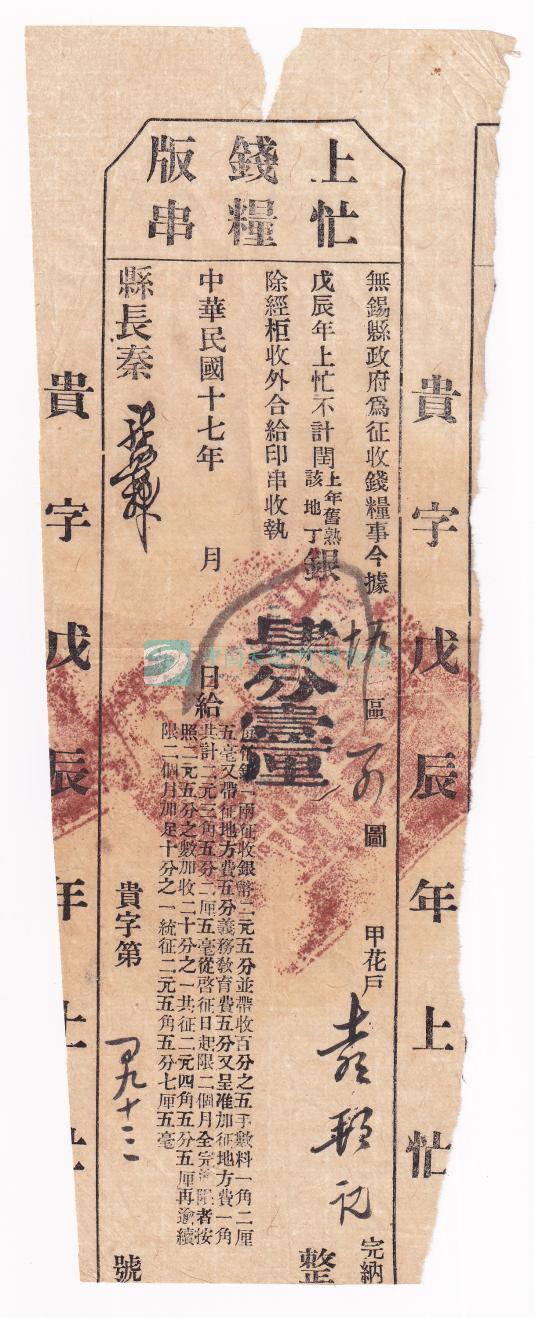 上忙
錢糧
版串
貴字戊辰年上忙
無錫縣政府爲征收錢糧事今據
區
圖
甲花戶
記
完納
戊辰年上忙不計閏上年舊熟該地丁銀
肆分壹厘
整
除經柜收外合給印串收執
每忙銀一兩征收銀幣二元五分並帶收百分之五手數料一角二厘
五毫又帶征地方費五分義務敎育費五分又呈准加征地方費一角
共計二元三角五分二厘五毫從啓征日起限二個月全完逾限者按
照二元五分之數加收二十分之一共征二元四角五分五厘再逾續
限二個月加足十分之一統征二元五角五分七厘五毫
中華民國十七年
月
日給
縣長秦
貴字第
九十三
號
貴字戊辰年上忙